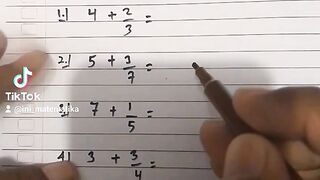 1.) 4 + 2/3 =
2.) 5 + 3/7 =
3.) 7 + 1/5 =
4.) 3 + 3/4 =
TikTok
@ini_matematika